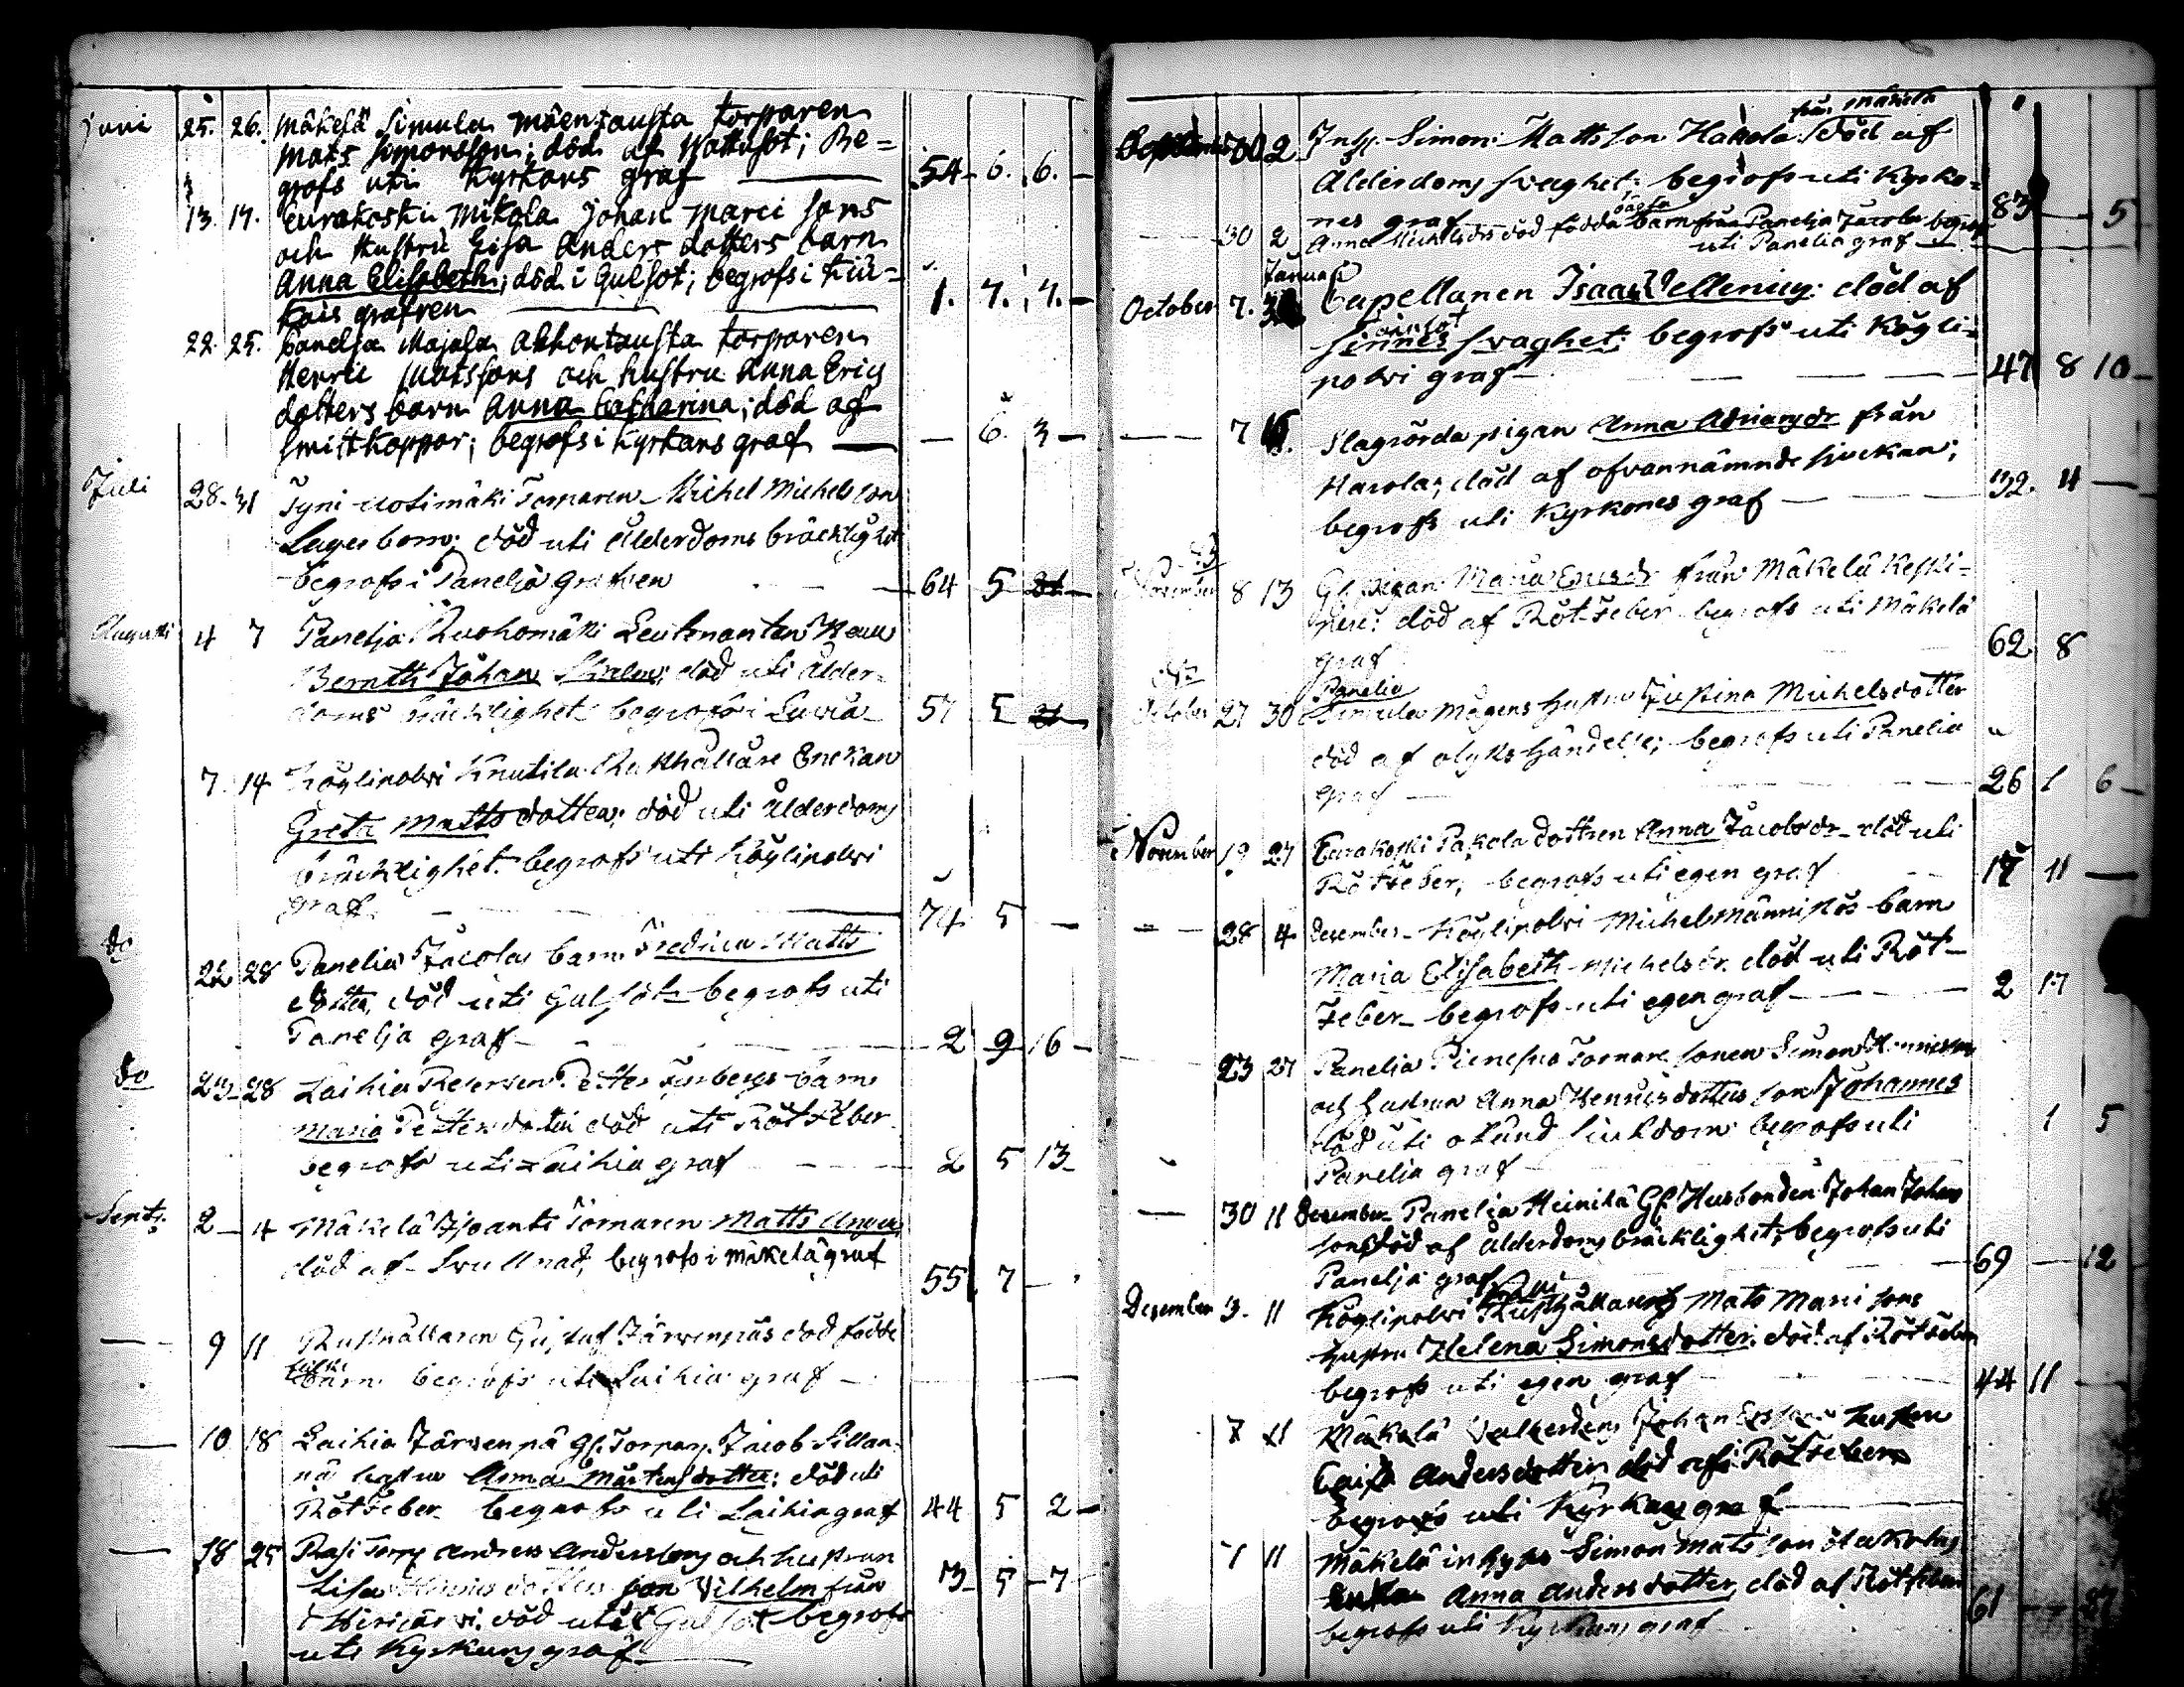 Juni 25. 26. Mäkelä Simula Mäentausta torparen
Mats Simonsson; död af Wattusot; Be=
grofs uti Kyrkans graf 54 6. 6.
13. 17. Eurakoski Mikola Johan Marci sons
och Hustru Lisa Anders dotters barn
Anna Elisabeth; död i Gulsot; begrofs i Kiu=
kais grafven 1. 7. 7.
22. 25. Panelja Majala Ahhontausta torparen
Henric Matssons och hustru Anna Erics
dotters barn Anna Catharina; död af
Smittkoppor; begrofs i Kyrkans graf — 6. 3
Juli 28. 31 Torparen Michel Michelsson
Lagerbom: död uti ålderdoms bräcklighet
begrofs i Panelja grafven 64 5
Augusti 4 7 Panelja Ruohomäki Leutnanten Herr
Bernth Johan död uti ålder=
doms bräcklighet begrofs i 57 5
7. 14 Köylipolvi Knutila Rusthållare Enckan
Greta Matts dotter; död uti ålderdoms
bräcklighet begrofs uti Köylipolvi
graf. 74 5 —
do 22 28 Panelia Jacola barn Fredrica Matts
dotter, död uti Gulsot begrofs uti
Panelja graf 2 9 16
do 23 28 Laihia Reserven Petter barn
Maria Petters dotter död uti Rötfeber
begrofs uti Laihia graf 2 5 13
Sept: 2 4 Mäkelä Torparen Matts
död af Svullnad, begrofs i Mäkelä graf 55 7 —
— 9 11 Rusthållaren Gustaf Järvenpäs död födde
barn begrofs uti Laihia graf
— 10 18 Laihia Järvenpä Gl. Torpar. Jacob Sillan=
pä hustru Anna Mårtensdotter: död uti
Rötfeber begrofs uti Laihia graf 44 5 2
— 18 25 Torp Anders Anderssons och hustrun
Lisa dotters son Vilhelm från
Hirvijärvi. död uti Gulsot begrofs 3 5 7
uti Kyrkans graf
30 2 Inh. Simon Mattsson Hakola från Mäkelä död af
Ålderdoms svaghet; begrofs uti Kyrko=
nes graf 83 — 5
— 30 2 Anna Michelsdrs död födda barn från Panelja Jacola begrofs
uti Panelia graf
October 7. Capellanen Isaac Vellenius: död af
Sinnes svaghet; begrofs uti Köyli=
polvi graf 47 8 10
— 7 Slagrörda pigan Anna Adriansdr från
Harola; död af ofvannämnde siuckan;
begrofs uti Kyrkones graf 32. 4 —
November 8 13 Gl. pigan Maria Ericsdr från Mäkelä Keski=
död af Röt-Feber begrofs uti Mäkelä
graf 62 8
October 27 30 Panelia
Simula Mågens hustru Justina Michelsdotter
död af olyks händelse; begrofs uti Panelia
graf 26 1 6
November 19 27 Eurakoski Pakola dottren Anna Jacobsdr död uti
Rötfeber, begrofs uti egen graf 11 —
— 28 4 December Köylipolvi Michel Männikös barn
Maria Elisabeth Michelsdr. död uti Röt-
Feber begrofs uti egen graf 2 17
23 27 Panelia Torpare sonen Simon Henricsson
och hustrun Anna Henricsdotters son Johannes
död uti okänd siukdom begrofs uti 1 5
Panelja graf
— 30 11 December Panelia Heinilä Gl. Husbonden Johan Johans
son död af ålderdoms bräcklighet, begrofs uti
Panelja graf 69 — 12
December 3. 11 Köylipolvi Rusthållarens Mats Marci sons
hustru Helena Simonsdotter död af Rötfeber
begrofs uti egen graf 44 11 —
7 11 Mäkelä Johan hustru
Caisa Andersdotter död af Rötfeber
begrofs uti Kyrkans graf
7 11 Mäkelä inhyses Simon Matsson Hakolas
Enka Anna Andersdotter, död af Rötfeber
begrofs uti Kyrkans graf 61